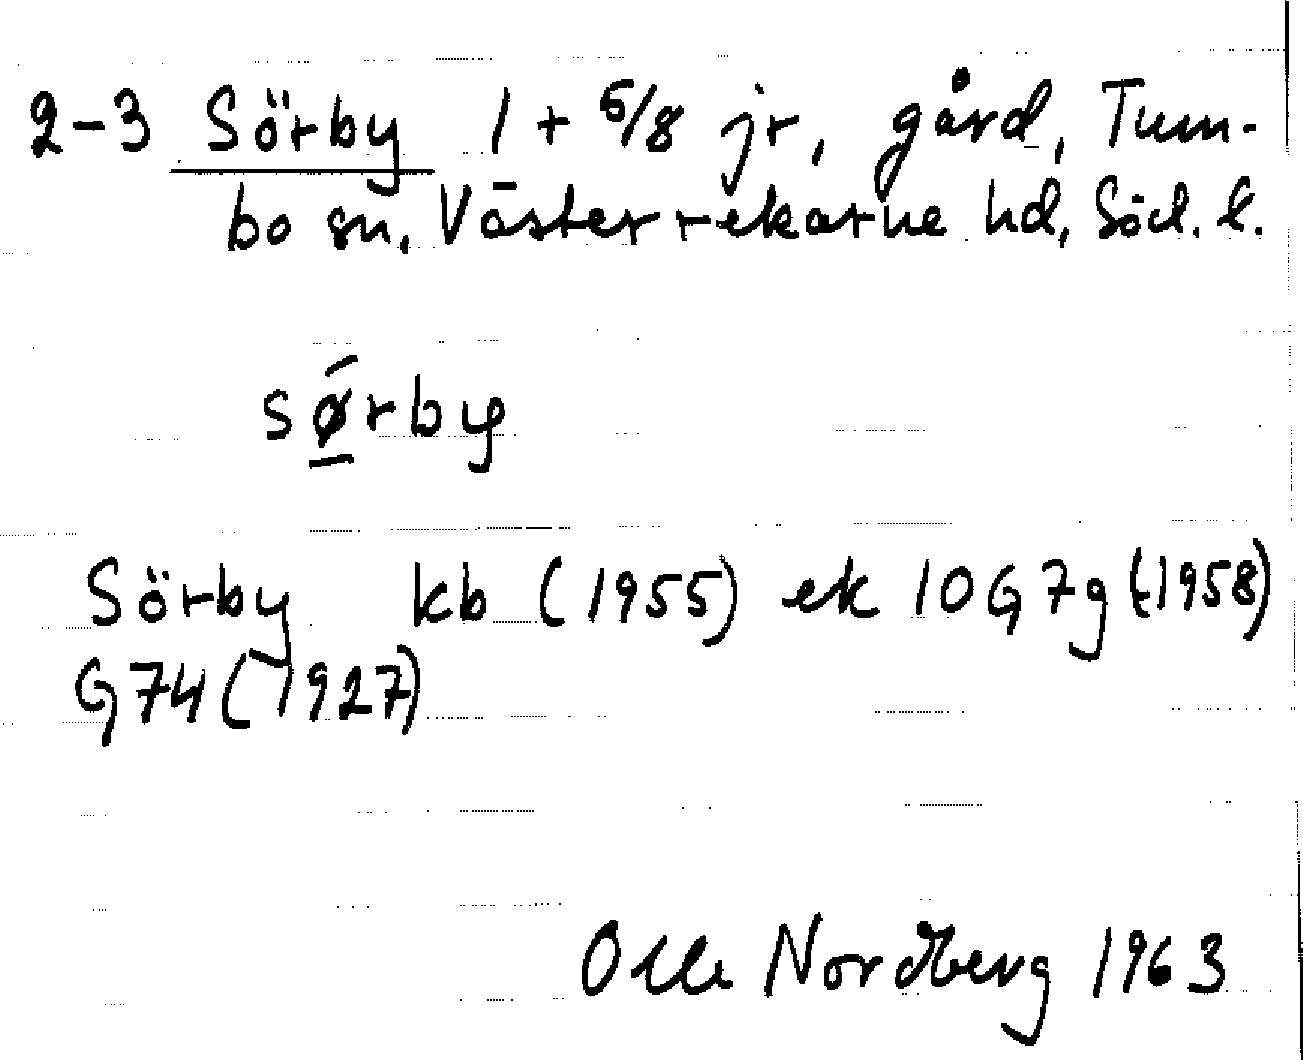 2-3 Sörby 1 + 5/8 jr, gård, Tum-
bo sn, Västerrekarne hd, Söd. l.
sǿ̠rby
Sörby kb (1955) ek 10G7g (1958)
G74 (1927)
Olle Nordberg 1963